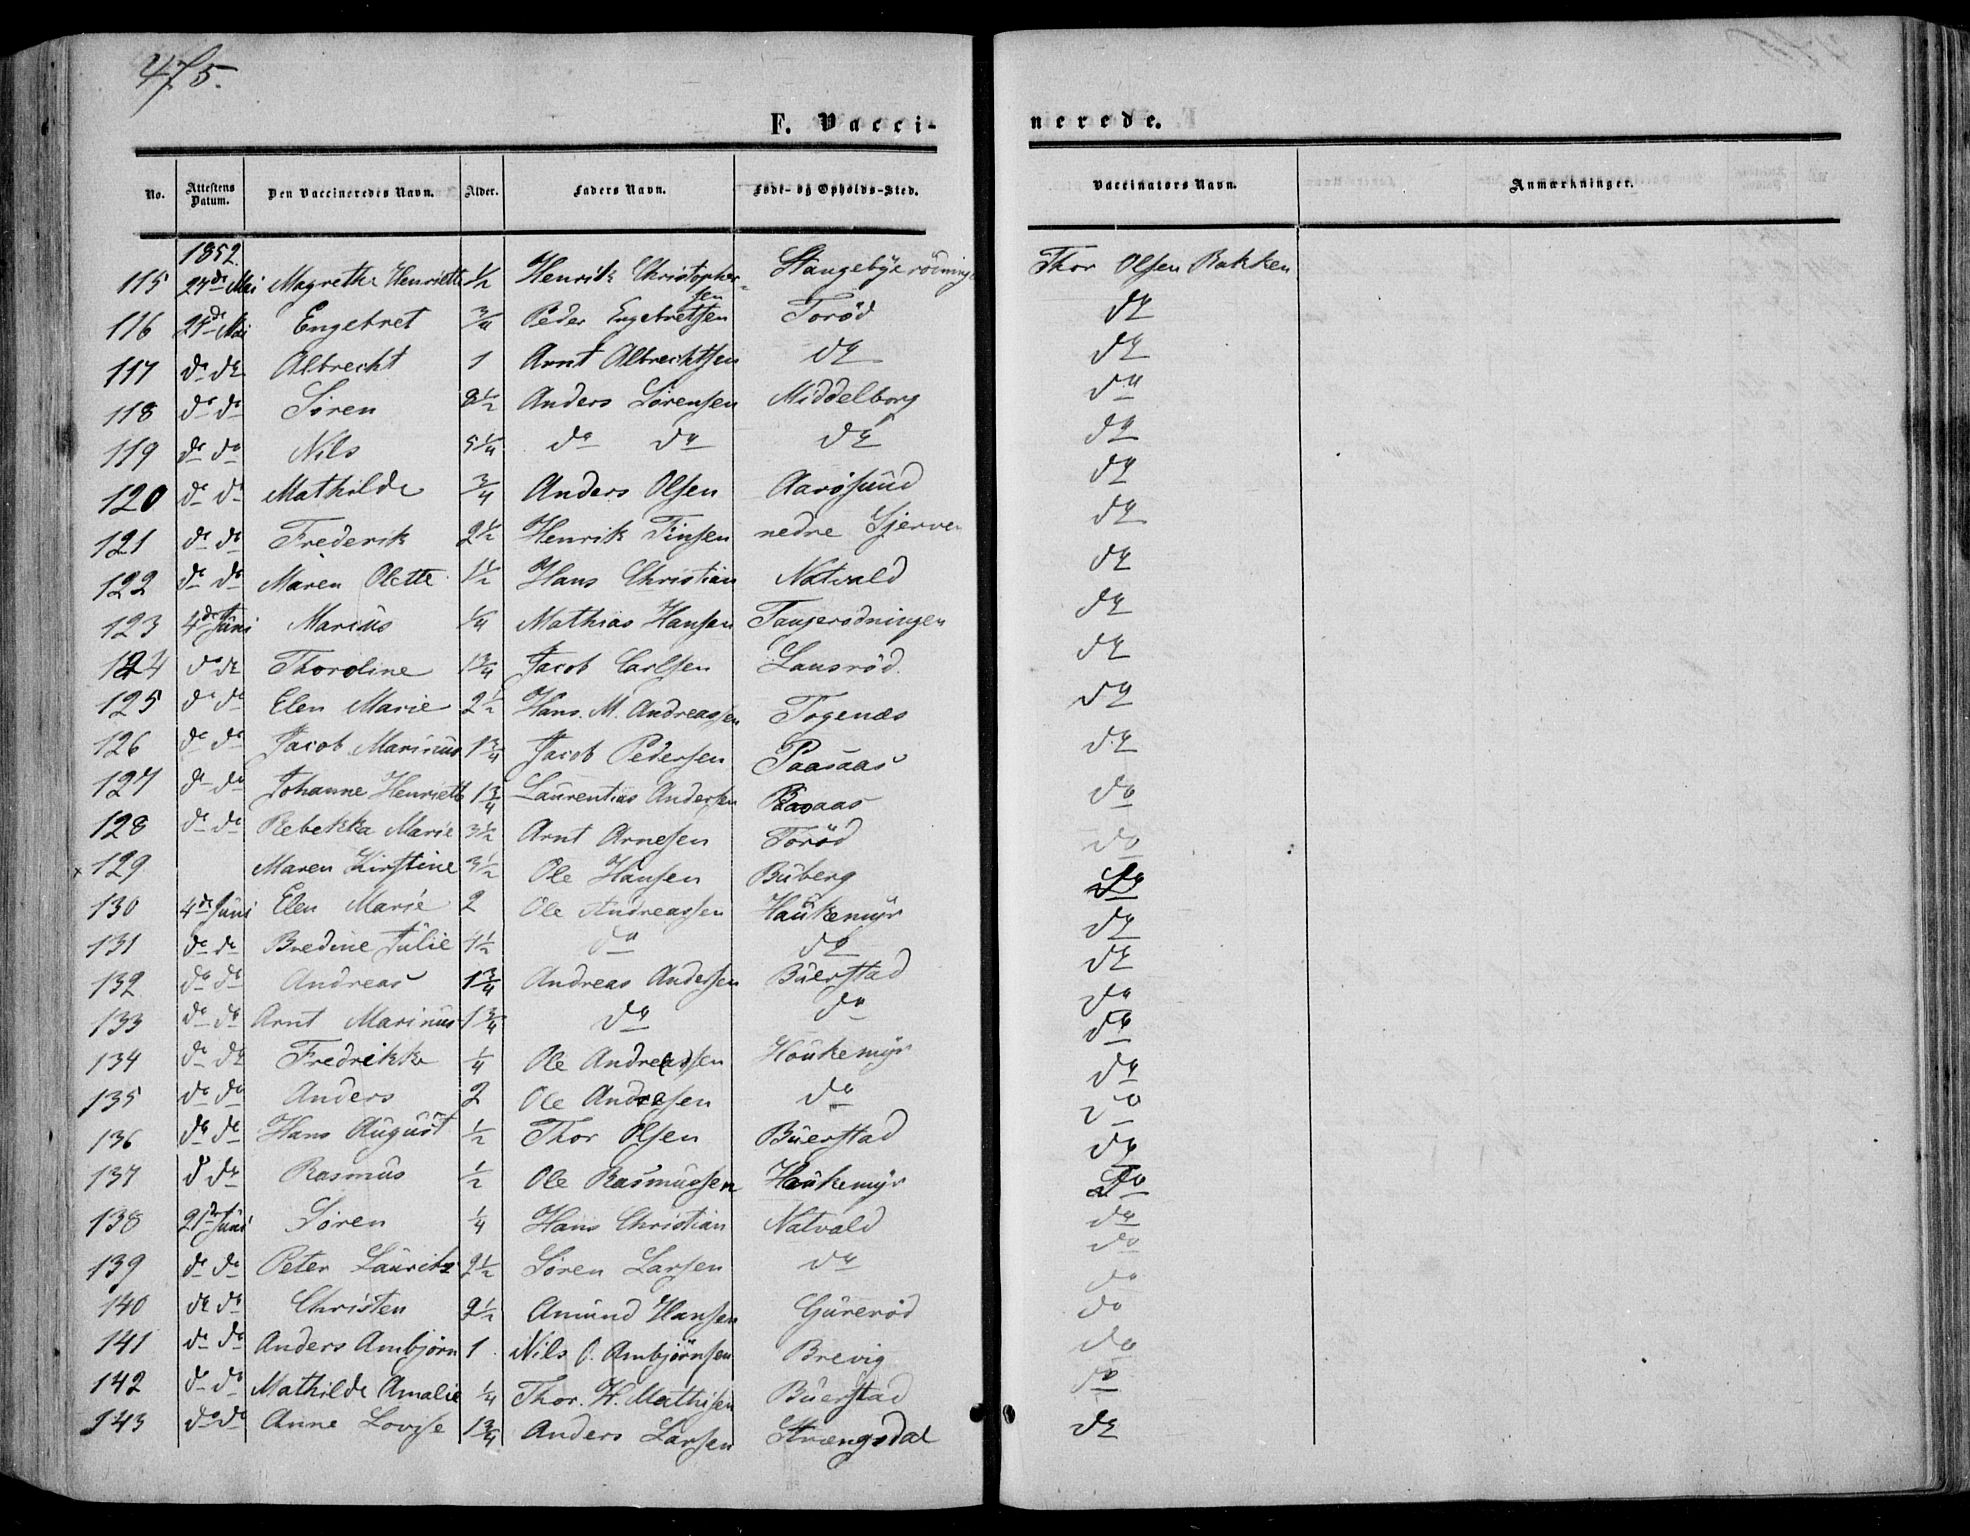 475.
F. Vacci-
nerede.
No. Attestens Datum. Den Vaccineredes Navn. Alder. Faders Navn. Føde- og Opholds-Sted. Vaccinators Navn. Anmærkninger.
1852.
115 24de Mai Magrethe Henriette 1/2 Henrik Christophersen Stangebye Thor Olsen Bakken
116 24de Mai Engebret 3/4 Peder Engebretsen Torød do
117 do do Albrecht 1 Arnt Albrechtsen do do
118 do do Søren 8 1/2 Anders Sørensen Middelborg do
119 do do Nils 5 1/4 do do do do
120 do do Mathilde 3/4 Anders Olsen Aarøsund do
121 do do Frederik 2 1/2 Henrik nedre do
122 do do Maren Olette 1 1/2 Hans Christian Natvald do
123 4de Juni Marius 1/4 Mathias Hansen do
124 do do Thoroline 1 3/4 Jacob Carlsen Lausrød. do
125 do do Elen Marie 2 1/2 Hans. M. Andreassen Togenæs do
126 do do Jacob Marinus 1 3/4 Jacob Pedersen Paasaas do
127 do do Johanne Henriette 1 3/4 Laurentius Andersen do
128 do do Rebekka Marie 3 1/2 Arnt Arnesen Torød do
x 129 Maren Kirstine 3 1/2 Ole Hansen Buberg do
130 4de Juni Elen Marie 2 Ole Andreassen Haukemyr do
131 do do Bredine Julie 4 1/2 do do do
132 do do Andreas 1 3/4 Andreas Andersen Buerstad do
133 do do Arnt Marinus 1 3/4 do do do
134 do do Fredrikke 1/4 Ole Andreassen Haukemyr do
135 do do Anders 2 Ole Andresen do do
136 do do Hans August 1/2 Thor Olsen Buerstad do
137 d do Rasmus 1/2 Ole Rasmussen Haukemyr do
138 21de Juni Søren 1/4 Hans Christian Natvald do
139 do do Peter Lauritz 2 1/2 Søren Larsen do do
140 do do Christen 2 1/2 Amund Hansen Gurerød do
141 do do Anders Ambjørn 1 Nils O. Ambjørnsen Brevig do
142 do do Mathilde Amalie 1/4 Thor. H. Mathisen Buerstad do
143 do do Anne Lovise 1 3/4 Anders Larsen Strængsdal do